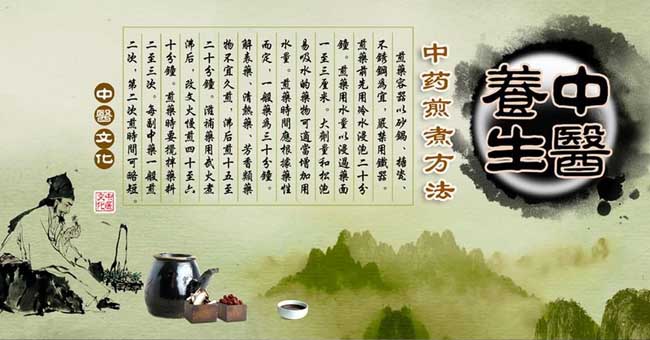 中醫
養生
中药煎煮方法
煎藥容器以砂鍋、搪瓷、
不銹鋼爲宜，嚴禁用鐵器。
煎藥前先用冷水浸泡二十分
鐘。煎藥用水量以浸過藥面
一至三厘米。大劑量和松泡
易吸水的藥物可適當增加用
水量。煎藥時間應根據藥性
而定，一般藥爲三十分鐘。
解表藥、清熱藥、芳香類藥
物不宜久煎，沸后煎十五至
二十分鐘。滋補藥用武火煮
沸后，改文火慢煎四十至六
十分鐘。煎藥時要攪拌藥料
二至三次。每副中藥一般煎
二次，第二次煎時間可略短。
中醫文化